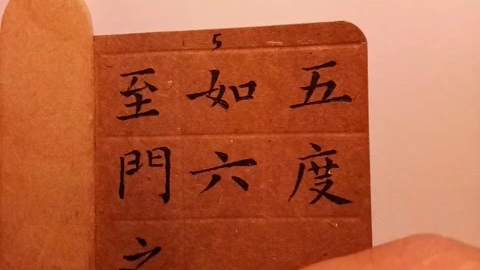 5
五度
如六
至門之